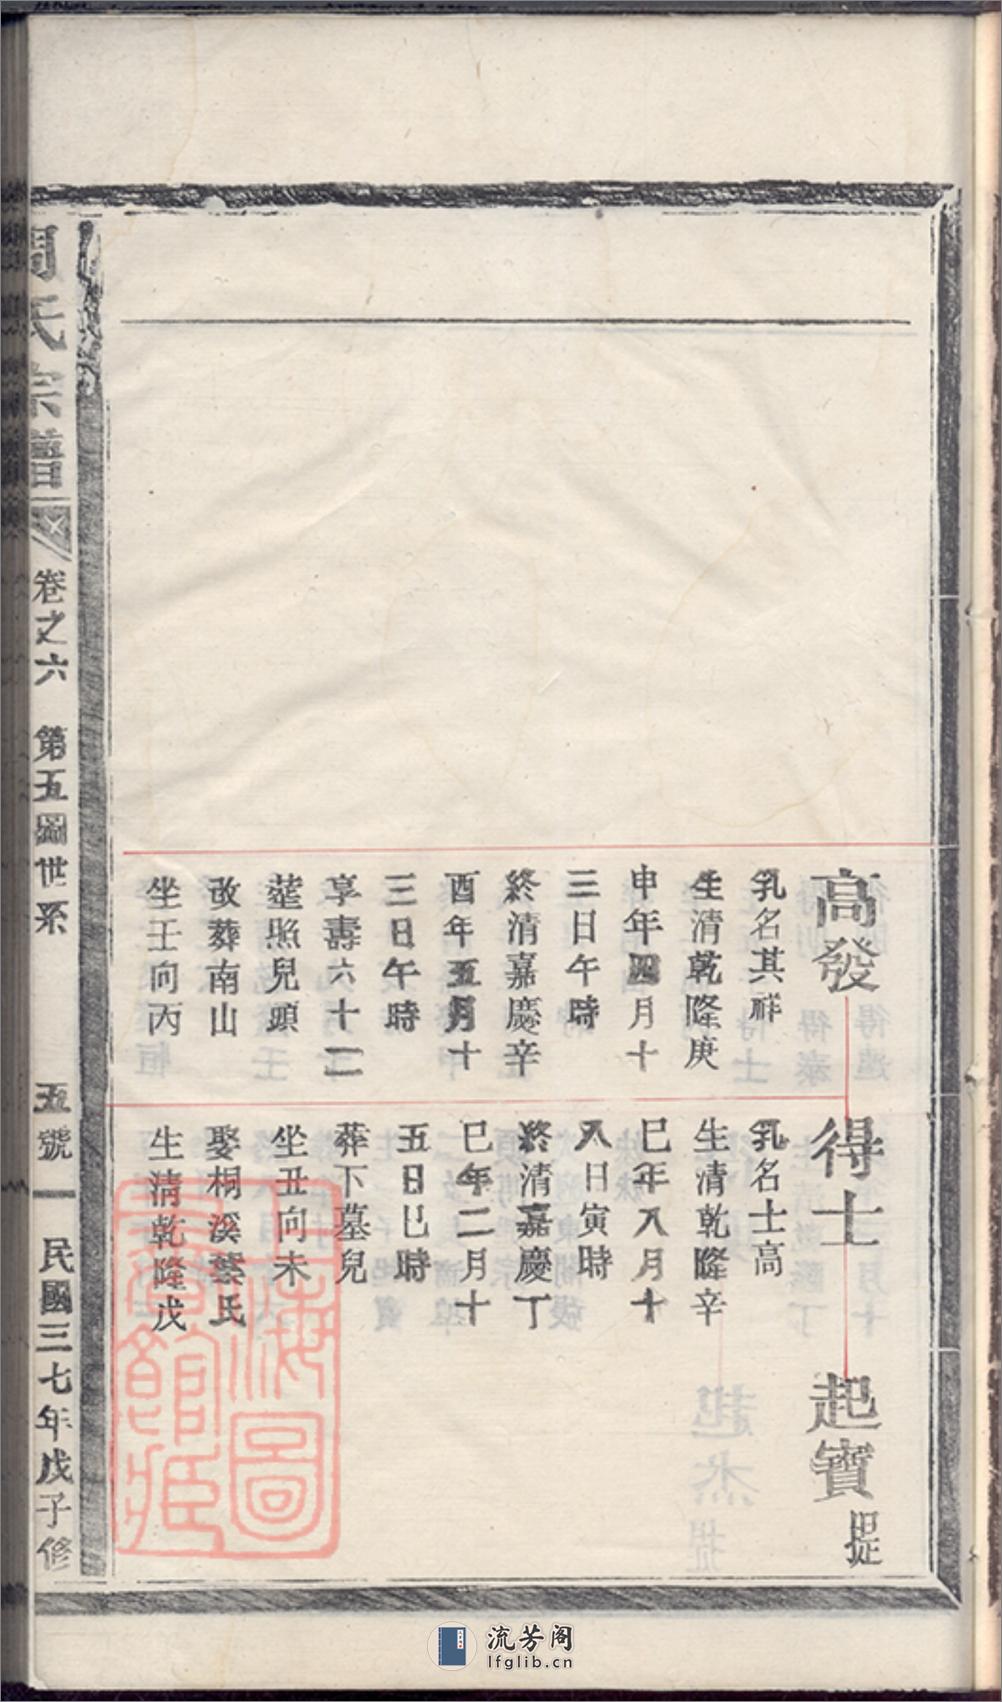 高發
乳名其祥
生清乾隆庚
申年四月十
三日午時
終清嘉慶辛
酉年五月十
三日午時
享壽六十二
塟照兒頭
改葬南山
坐壬向丙
得士
乳名士高
生清乾隆辛
巳年八月十
八日寅時
終清嘉慶丁
巳年二月十
五日巳時
葬下墓兒
坐丑向未
娶桐溪蔡氏
生清乾隆戊
起寶 提
周氏宗譜
卷之六 第五圖世系
五號 民國三七年戊子修
上海圖
書館藏
流芳阁
lfglib.cn